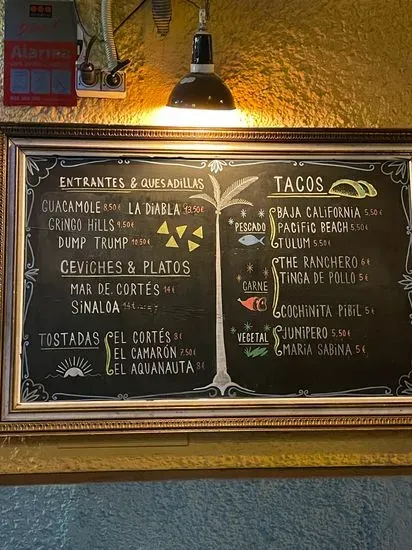 Alarma
ENTRANTES & QUESADILLAS
GUACAMOLE 8,50€ LA DIABLA 13,50€
GRINGO HILLS 9.50€
DUMP TRUMP 10.50€
CEVICHES & PLATOS
MAR DE CORTÉS 14€
SINALOA 14€
TOSTADAS
EL CORTÉS 8€
EL CAMARÓN 7.50€
EL AQUANAUTA 8€
TACOS
PESCADO
BAJA CALIFORNIA 5,50€
PACIFIC BEACH 5,50€
TULUM 5.50€
CARNE
THE RANCHERO 6€
TINGA DE POLLO 5€
COCHINITA PIBIL 5€
VEGETAL
JUNIPERO 5,50€
MARIA SABINA 5€